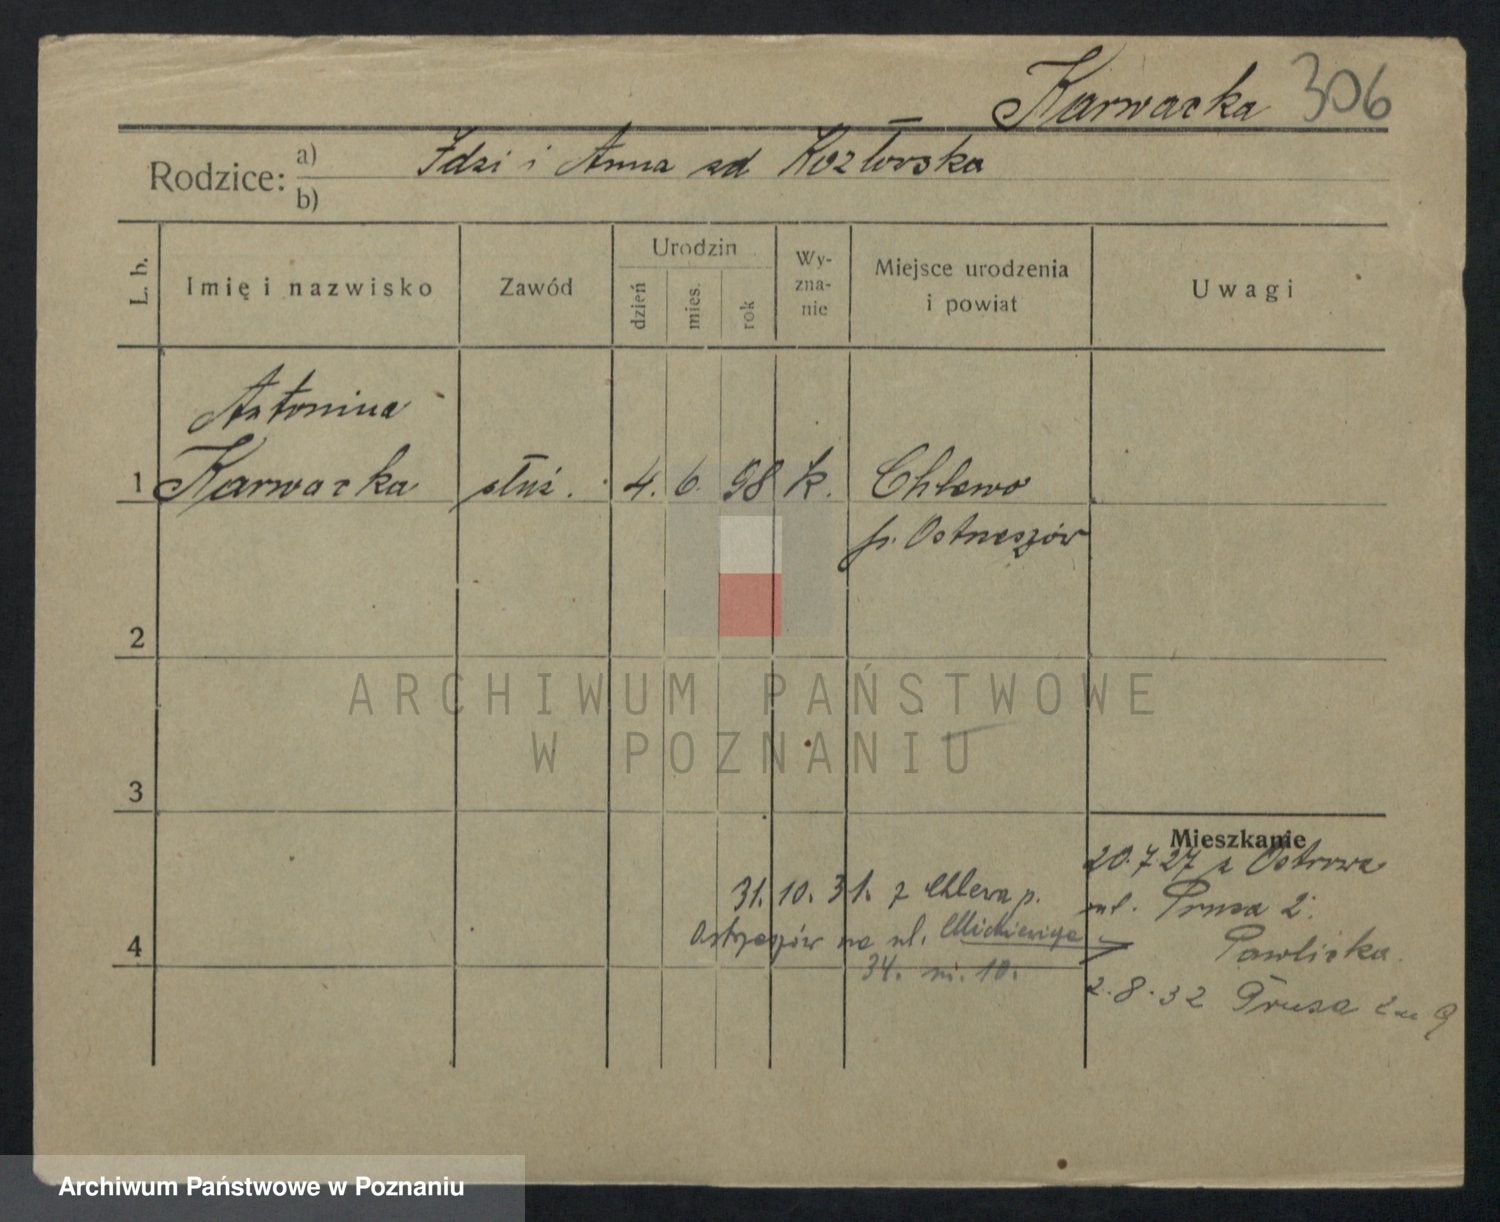 Karwacka 306
Rodzice: a) Idzi i Anna zd Kozłowska
b)
L. b.
Imię i nazwisko
Zawód
Urodzin
dzień
mies.
rok
Wy-
zna-
nie
Miejsce urodzenia
i powiat
Uwagi
Antonina
1 Karwacka służ. 4. 6. 98 k. Chlewo
p. Ostrzeszów
2
ARCHIWUM PAŃSTWOWE
W POZNANIU
3
Mieszkanie
20.7 27 z Ostrowa
ul. Prusa 2.
Pawlicka.
2.8.32 Prusa 2 m 9
31. 10. 31. z Chlewa p.
Ostrzeszów na ul. Mickiewicza
34. m. 10.
4
Archiwum Państwowe w Poznaniu